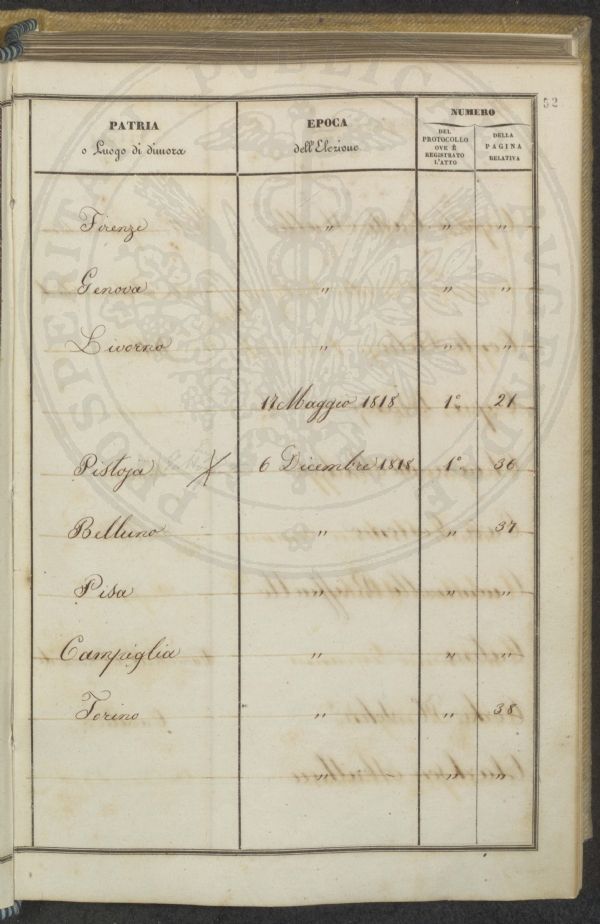 52
PATRIA
o Luogo di dimora
EPOCA
dell'Elezione
NUMERO
DEL PROTOCOLLO OVE È REGISTRATO L'ATTO
DELLA PAGINA RELATIVA
Firenze " " "
Genova " " "
Livorno " " "
17 Maggio 1818 1° 21
Pistoja 6 Dicembre 1818 1° 36
Belluno " " 37
Pisa " " "
Campiglia " " "
Torino " " 38
" " "
PROSPERITATI PUBLICAE AUGENDAE